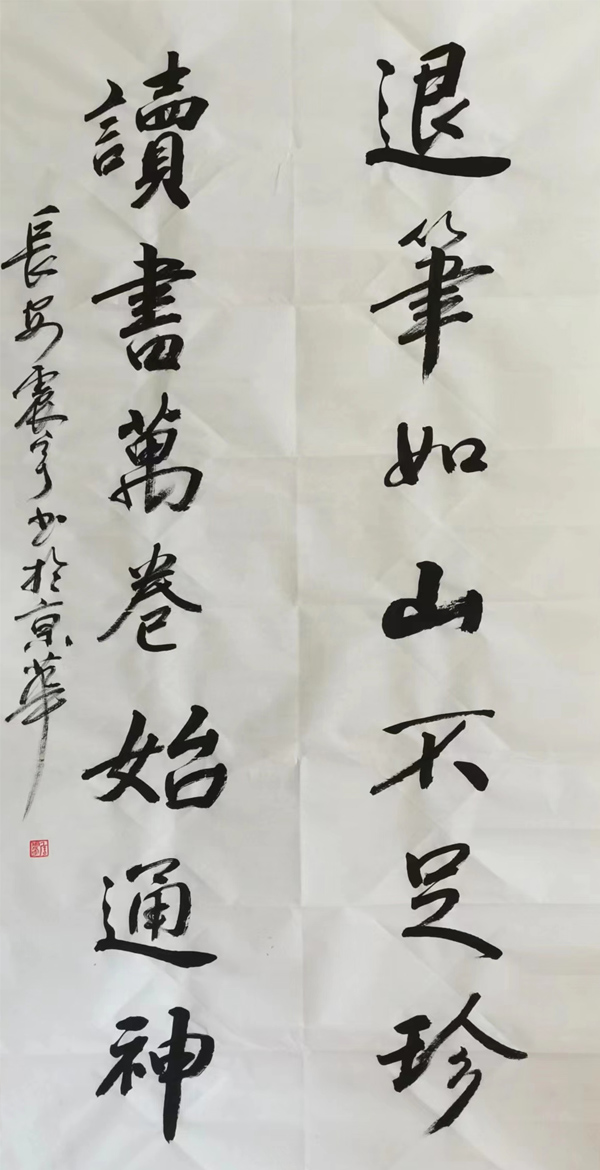 退筆如山不足珍
讀書萬卷始通神
長安震亨书於京華